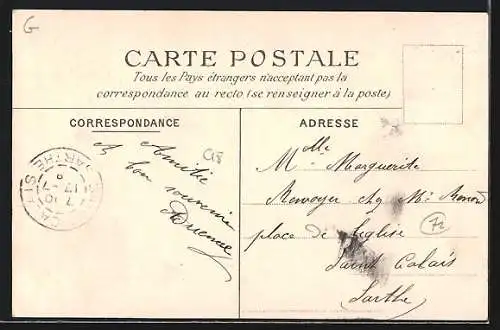 G
CARTE POSTALE
Tous les Pays étrangers n'acceptant pas la
correspondance au recto (se renseigner à la poste)
CORRESPONDANCE
ADRESSE
Amitié
A bon souvenir
Mlle
Mlle Marguerite
chez Mr
place de l'église
Saint Calais
Sarthe
SARTHE
72